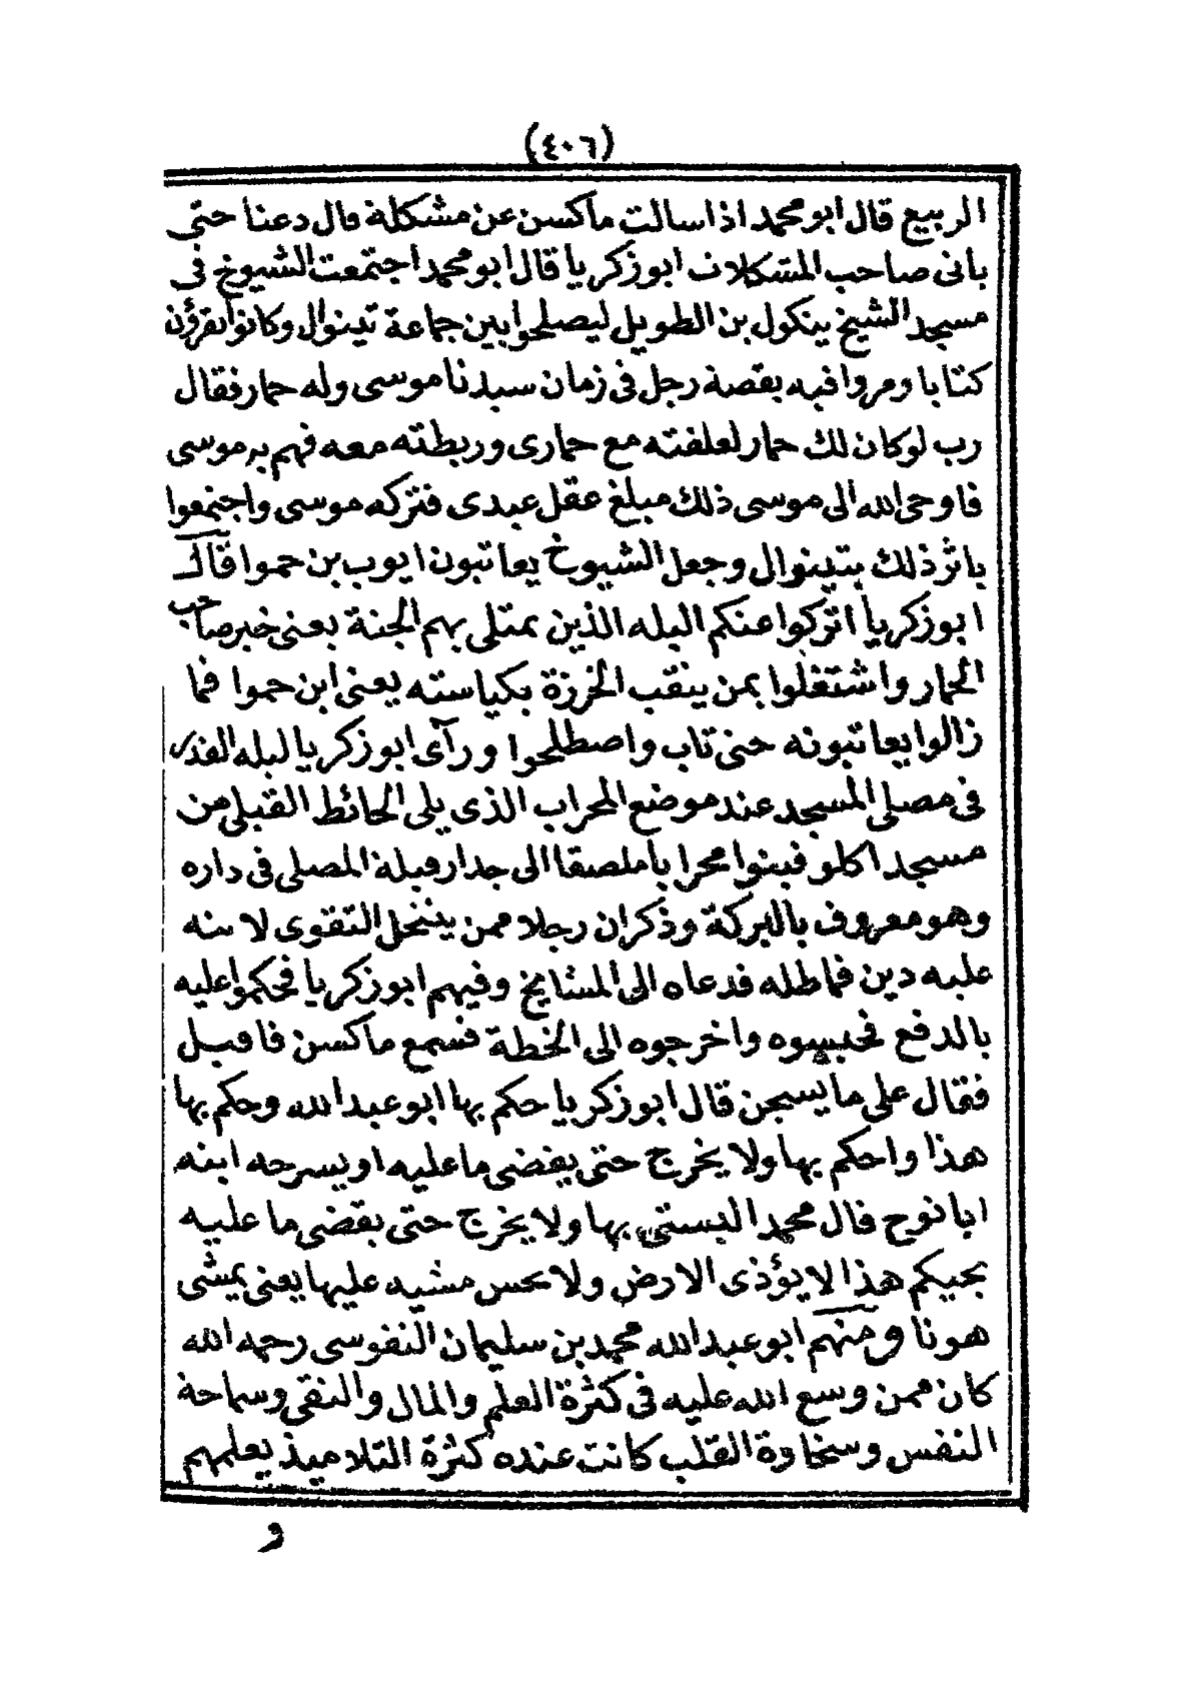 (٤٠٦)
الربيع قال ابو محمد اذا سالت ماكسن عن مشكلة قال دعنا حتى
ياتى صاحب المشكلات ابو زكريا قال ابو محمد اجتمعت الشيوخ فى
مسجد الشيخ ينكول بن الطويل ليصلحوا بين جماعة تينوال وكانوا يقرؤن
كتابا ومروا فيه بقصة رجل فى زمان سيدنا موسى وله حمار فقال
رب لو كان لك حمار لعلفته مع حمارى وربطته معه فهم به موسى
فاوحى الله الى موسى ذلك مبلغ عقل عبدى فتركه موسى واجتمعوا
باثر ذلك بتينوال وجعل الشيوخ يعاتبون ايوب بن حموا قال
ابو زكريا اتركوا عنكم البله الذين يمتلى بهم الجنة يعنى خبر صاحب
الحمار واشتغلوا بمن ينقب الخرزة بكياسته يعنى ابن حموا فما
زالوا يعاتبونه حتى تاب واصطلحوا ورآى ابو زكريا ليله القدر
فى مصلى المسجد عند موضع المحراب الذى يلى الحائط القبلى من
مسجد اكلو فبنوا محرابا ملصقا الى جدار قبلة المصلى فى داره
وهو معروف بالبركة وذكر ان رجلا ممن ينتحل التقوى لابنه
عليه دين فماطله فدعاه الى المشايخ وفيهم ابو زكريا فحكموا عليه
بالدفع فحبسوه واخرجوه الى الخطة فسمع ماكسن فاقبل
فقال على ما يسجن قال ابو زكريا حكم بها ابو عبد الله وحكم بها
هذا واحكم بها ولا يخرج حتى يقضى ما عليه او يسرحه ابنه
ابا نوح قال محمد البستى بها ولا يخرج حتى يقضى ما عليه
بحيكم هذا لا يؤذى الارض ولا يحس مشيه عليها يعنى يمشى
هونا ومنهم ابو عبد الله محمد بن سليمان النفوسى رحمه الله
كان ممن وسع الله عليه فى كثرة العلم والمال والتقى وسماحة
النفس وسخاوة القلب كانت عنده كثرة التلاميذ يعلمهم
و